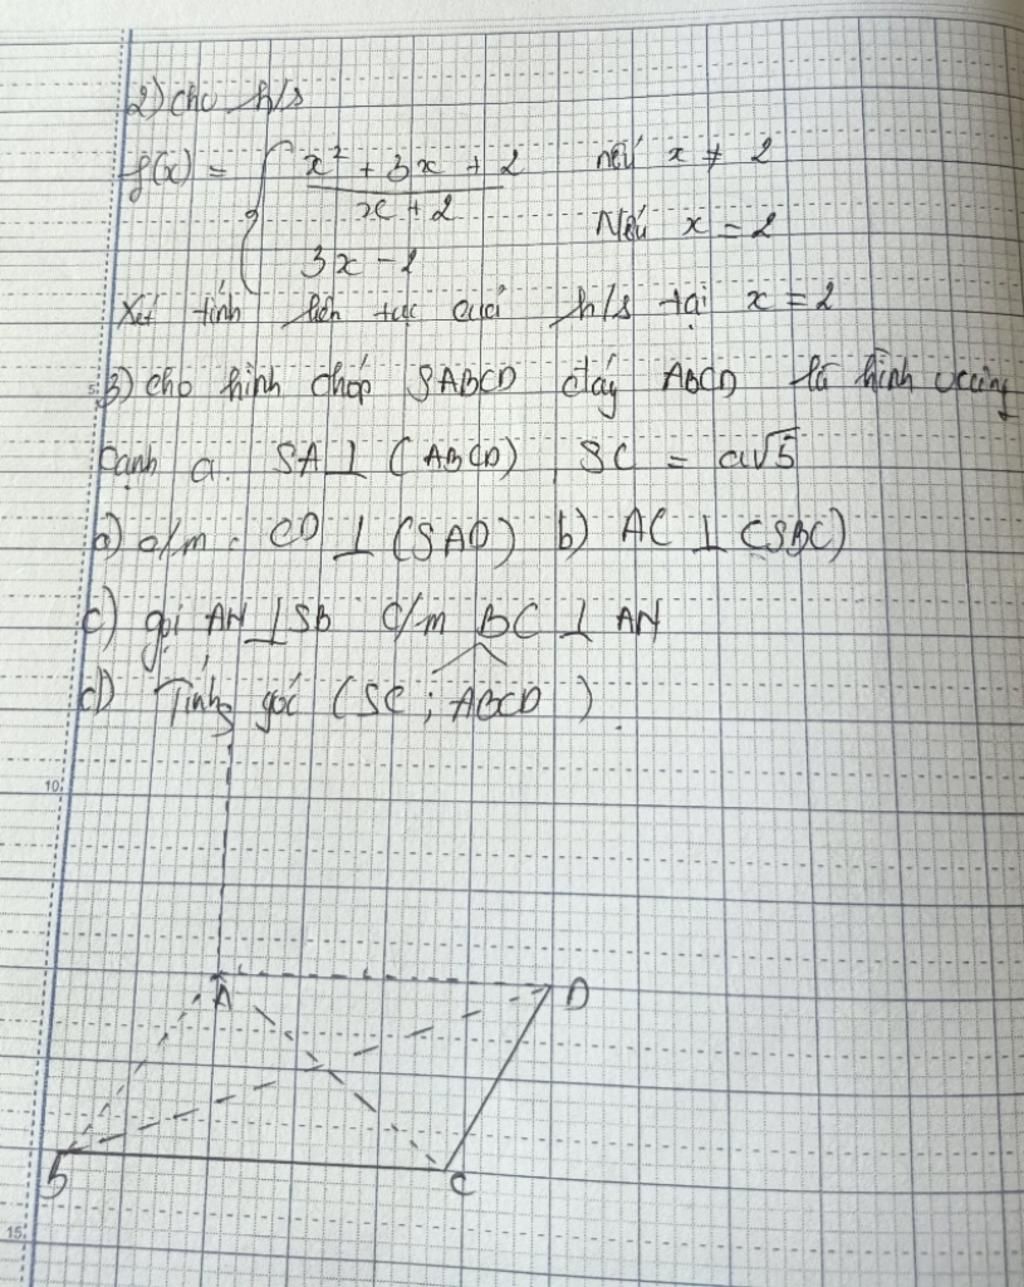 2) cho h/s
f(x) = { x² + 3x + 2 / x + 2 nếu x ≠ 2
3x - 1 Nếu x = 2
Xét tính liên tục của h/s tại x = 2
3) cho hình chóp SABCD đáy ABCD là hình vuông
cạnh a. SA ⊥ (ABCD), SC = a√5
a) c/m: CD ⊥ (SAD) b) AC ⊥ (SBC)
c) gọi AN ⊥ SB c/m BC ⊥ AN
d) Tính góc (SC; ABCD).
10
A D
B C
15